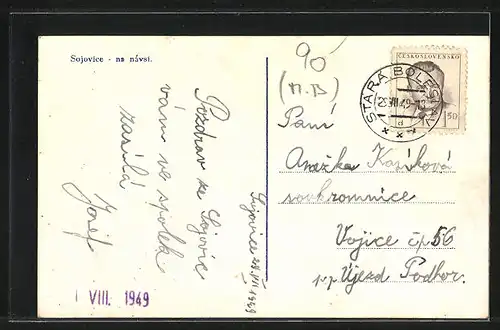 Sojovice - na návsi.
90
(M.B)
ČESKOSLOVENSKO
STARÁ BOLESLAV
1,50
Pozdrav ze Sojovic
vám ve spolek
zasílá
Josef
Sojovice 28/VII 1949
Paní
Anežka Kazíková
soukromnice
Vojice čp 56
p.p Újezd Podhor.
VIII. 1949